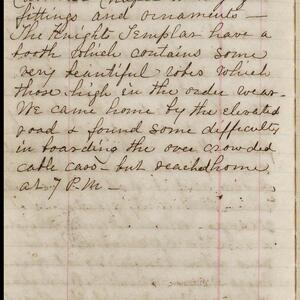 fittings and ornaments —
The Knights Templar have a
booth which contains some
very beautiful robes which
those high in the order wear.
We came home by the elevated
road & found some difficulty
in boarding the over crowded
cable cars — but reached home
at 7 P.M —